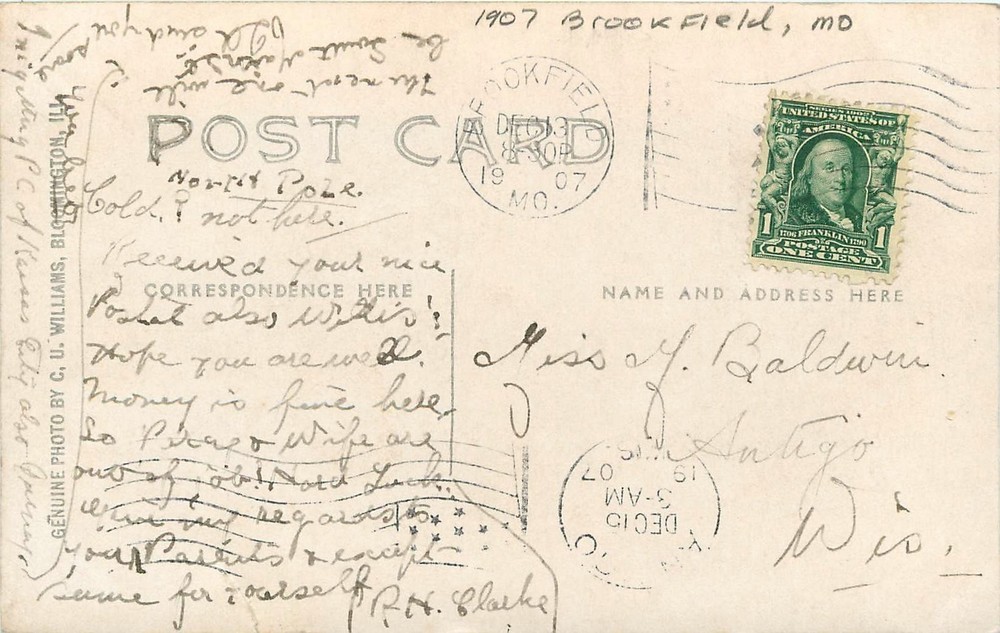 1907 Brookfield, MO
The next one will
be Saint
BROOKFIELD
DEC 13
8-30P
19 07
MO.
SERIES 1902
UNITED STATES OF
AMERICA
1706 FRANKLIN 1790
POSTAGE
1 ONE CENT 1
POST CARD
North Pole.
Cold, ? not here.
Received your nice
CORRESPONDENCE HERE
Postal also Willis'!
Hope you are well.
Money is fine here.
So & Wife are
out of job! Hard Luck.
Give my regards to
your Parents & except
same for Yourself
R. H. Clarke
NAME AND ADDRESS HERE
Miss M. Baldwin.
Antigo
Wis.
DEC 15
3-AM
19 07
WIS.
GENUINE PHOTO BY C. U. WILLIAMS, BLOOMINGTON, ILL.
P C of Kansas City also